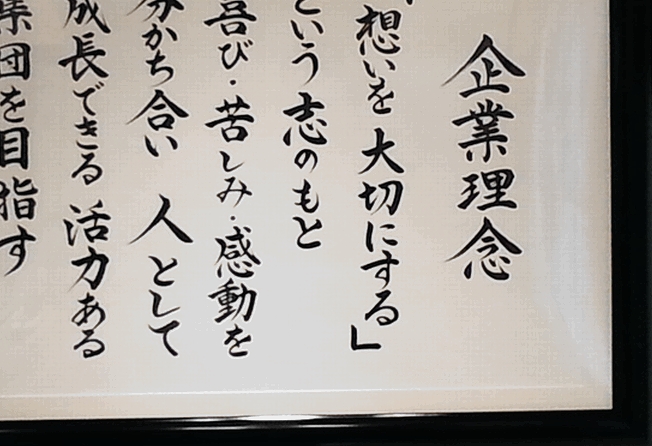 企業理念
「想いを大切にする」
という志のもと
喜び・苦しみ・感動を
分かち合い 人として
成長できる 活力ある
集団を目指す